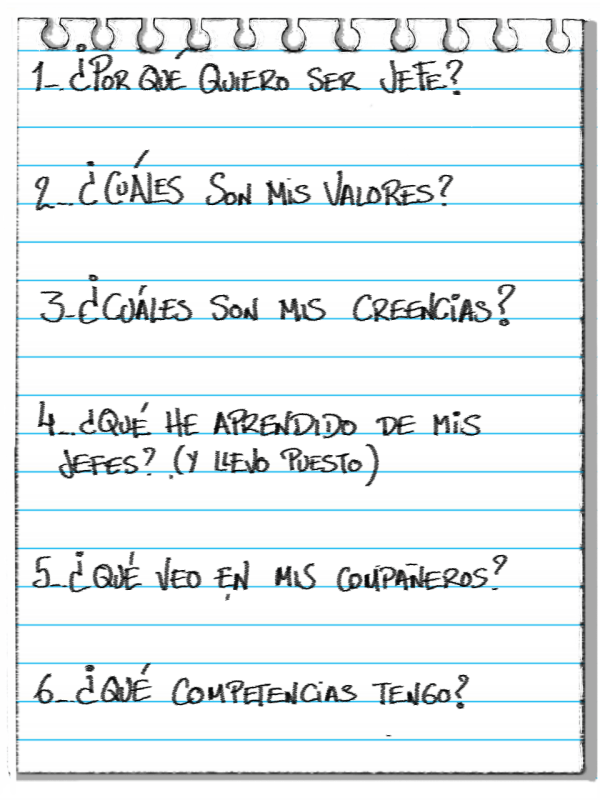 1_ ¿POR QUÉ QUIERO SER JEFE?
2_ ¿CUÁLES SON MIS VALORES?
3_ ¿CUÁLES SON MIS CREENCIAS?
4_ ¿QUÉ HE APRENDIDO DE MIS
JEFES? (Y LLEVO PUESTO)
5_ ¿QUÉ VEO EN MIS COMPAÑEROS?
6_ ¿QUÉ COMPETENCIAS TENGO?